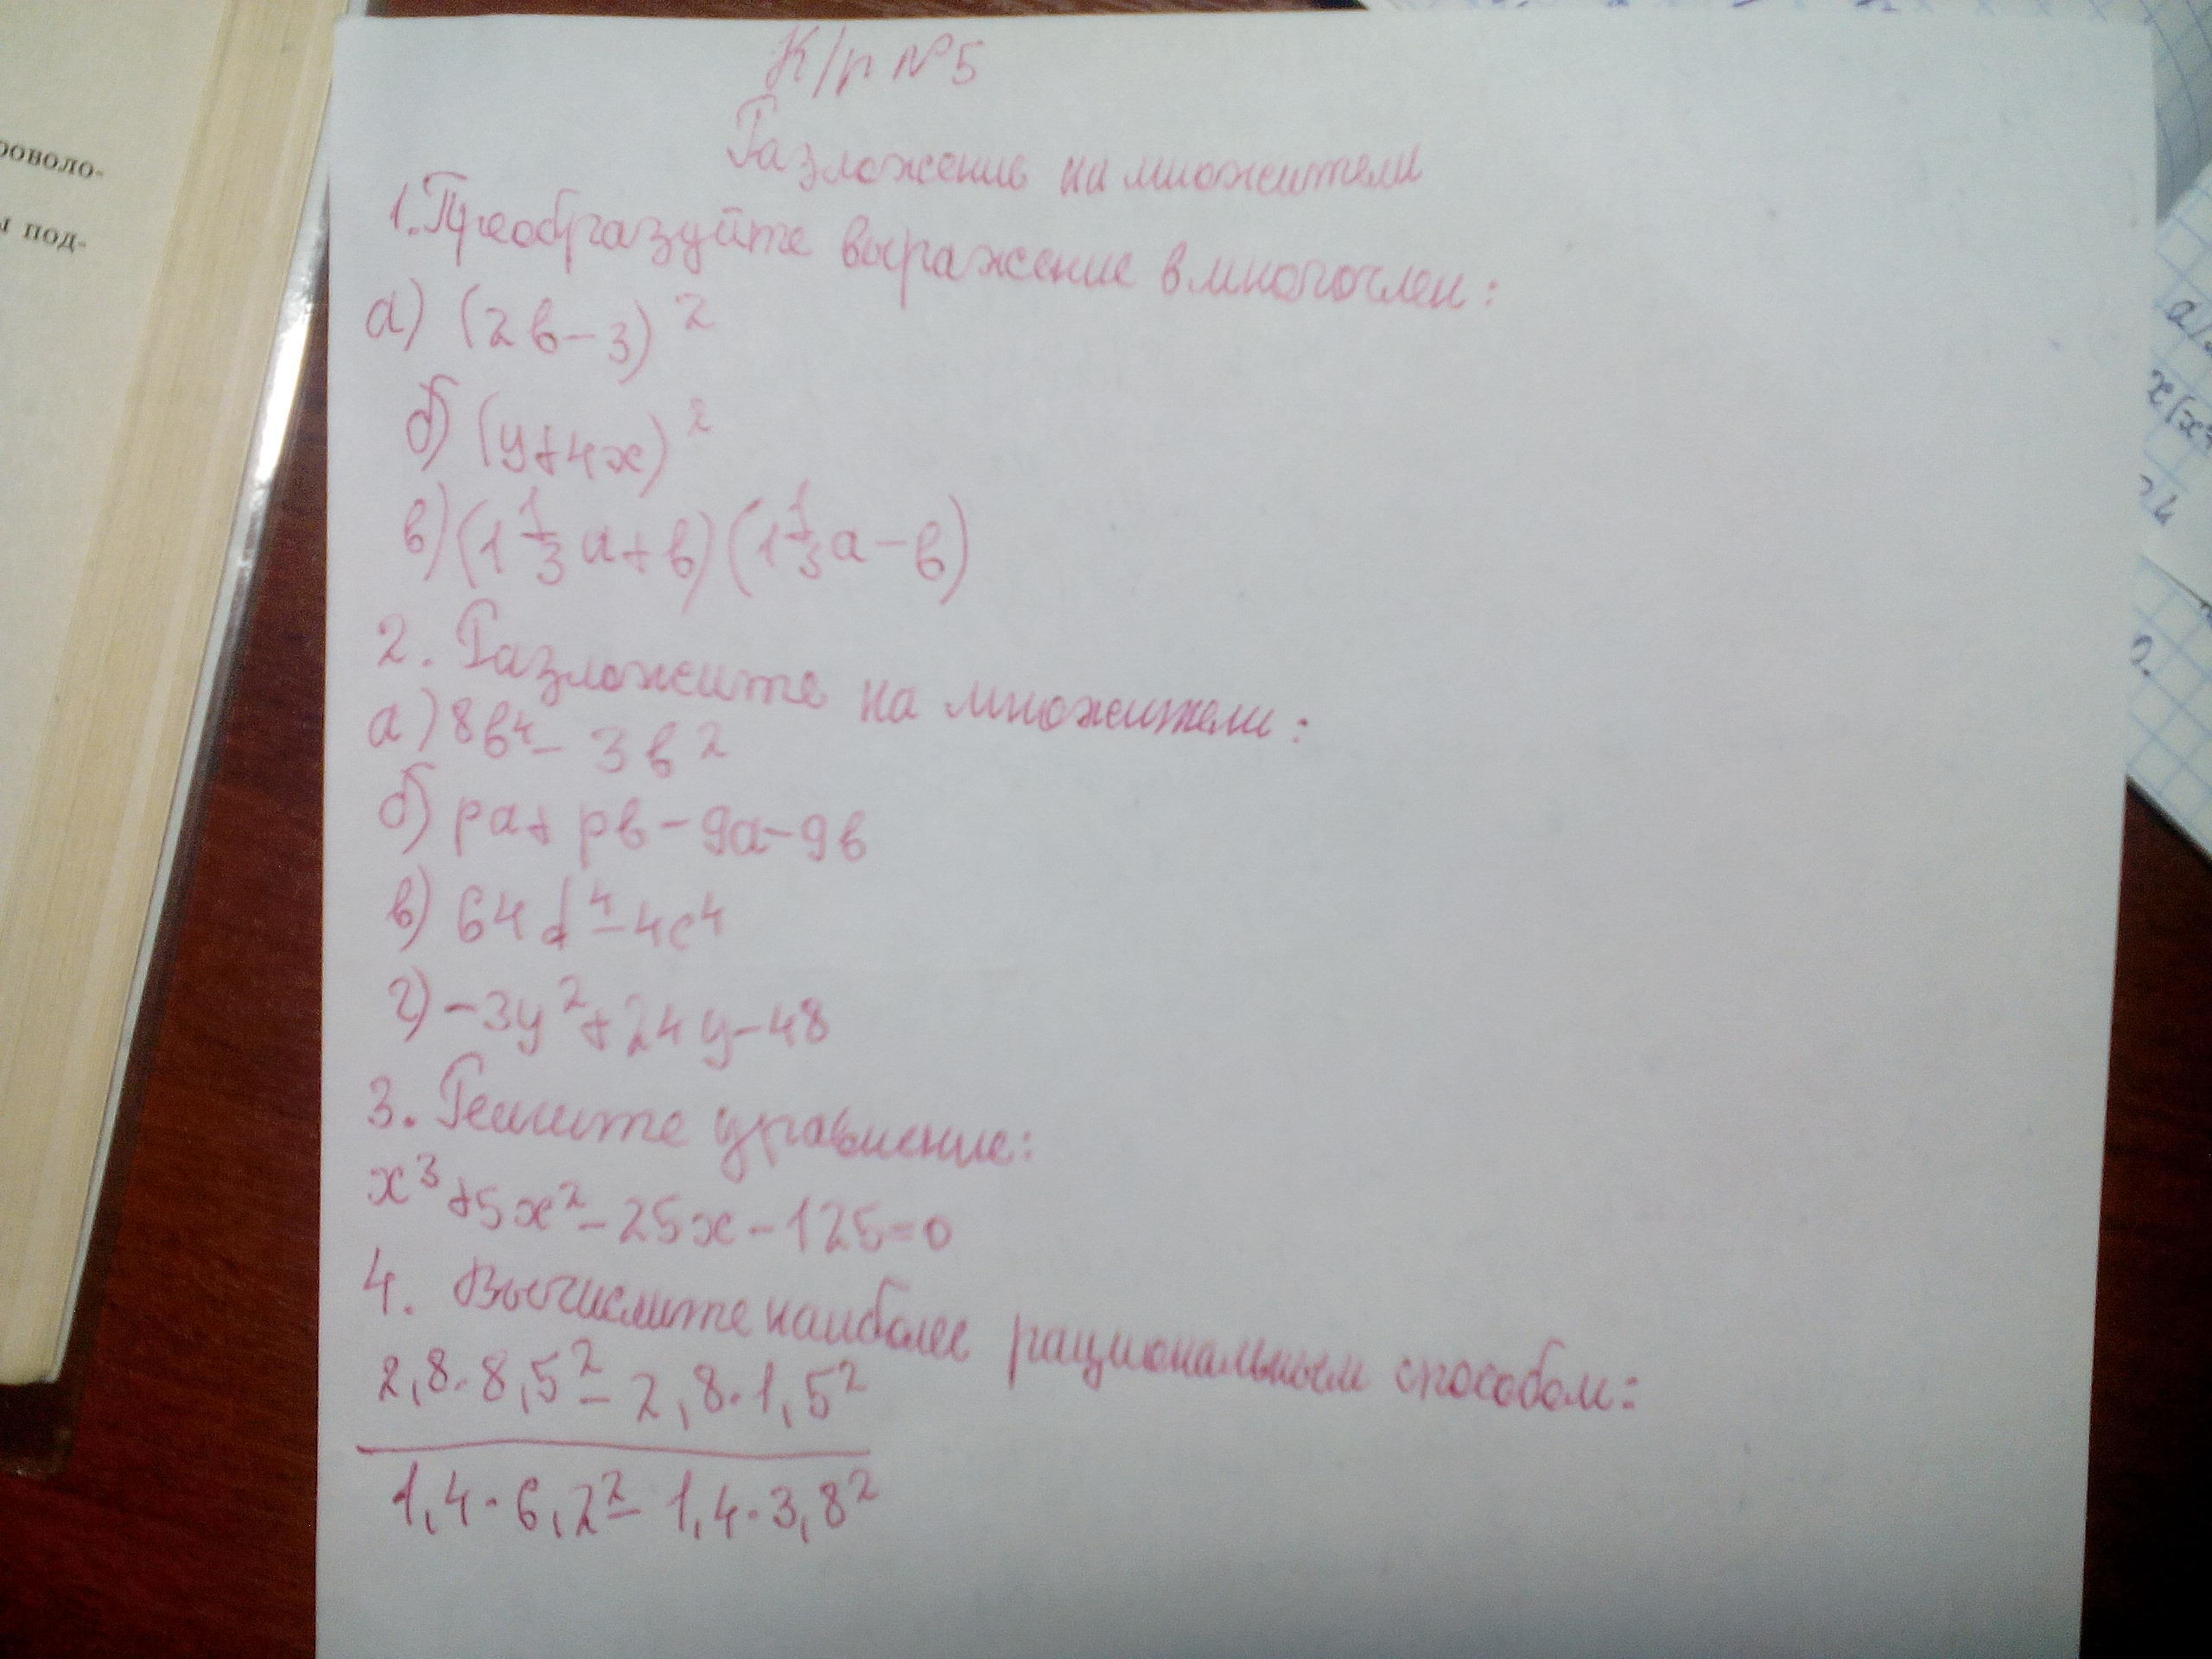 К/р №5
Разложение на множители
1. Преобразуйте выражение в многочлен:
а) (2в-3)²
б) (y+4x)²
в) (1 1/3 а+в)(1 1/3 а-в)
2. Разложите на множители:
а) 8в⁴-3в²
б) ра+рв-9а-9в
в) 64d⁴-4c⁴
г) -3y²+24y-48
3. Решите уравнение:
x³+5x²-25x-125=0
4. Вычислите наиболее рациональным способом:
2,8·8,5²-2,8·1,5²
1,4·6,2²-1,4·3,8²
роволо-
ы под-